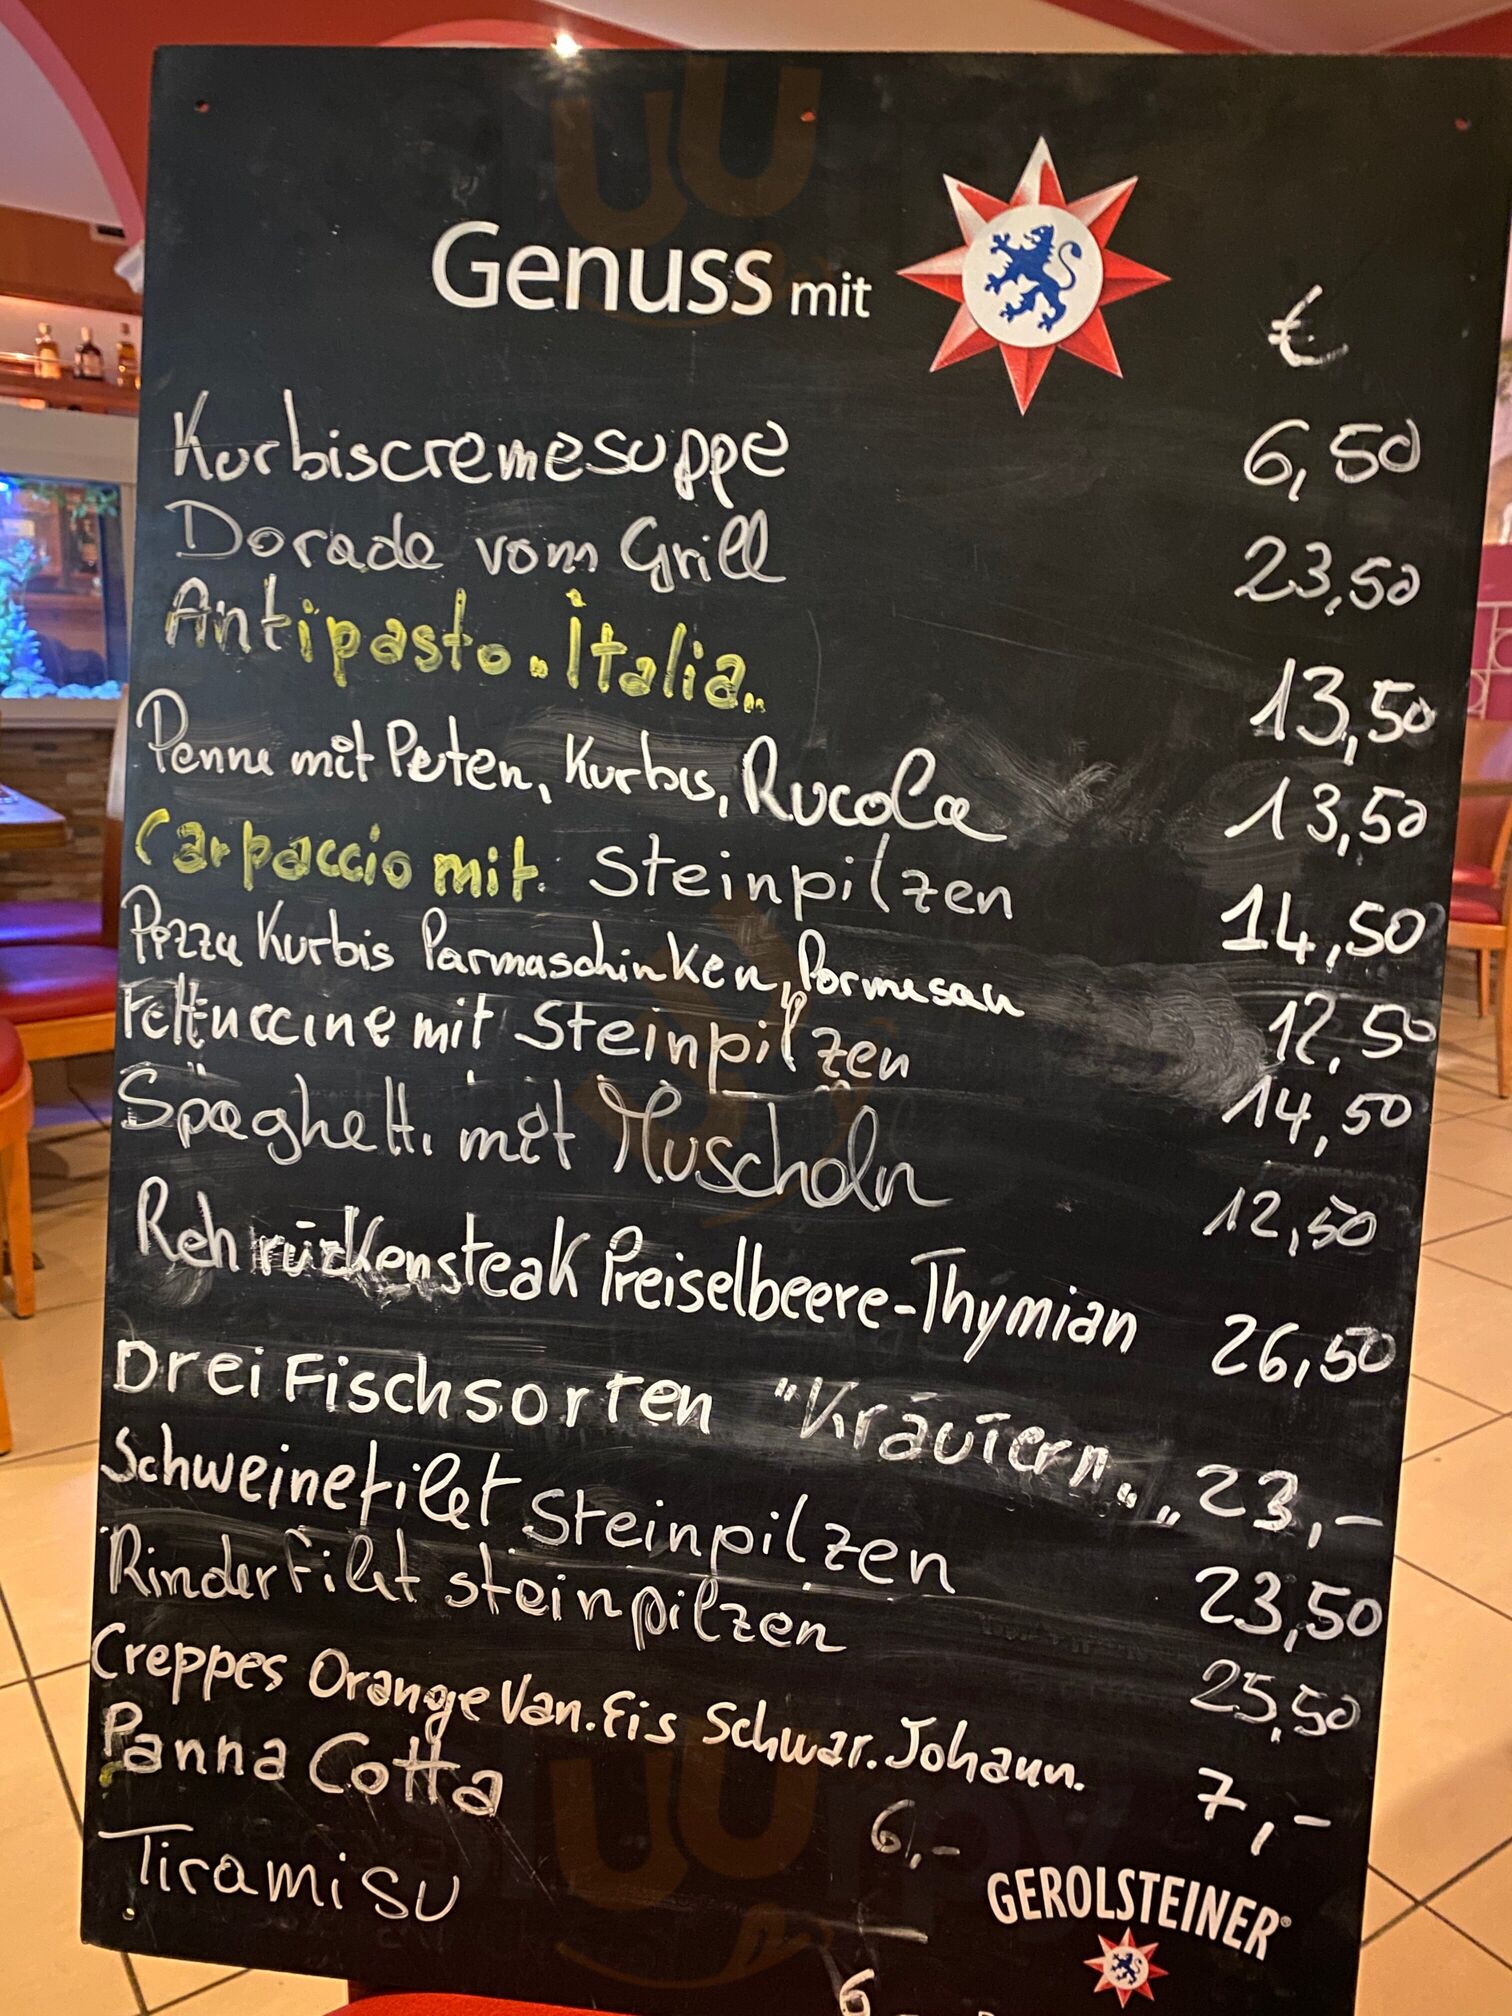 Genuss mit
€
Kurbiscremesuppe 6,50
Dorade vom Grill 23,50
Antipasto "Italia" 13,50
Penne mit Puten, Kurbis, Rucola 13,50
Carpaccio mit Steinpilzen 14,50
Pizza Kurbis Parmaschinken, Parmesan 12,50
Fettuccine mit Steinpilzen 14,50
Spaghetti mit Muscheln 12,50
Rehrückensteak Preiselbeere-Thymian 26,50
Drei Fischsorten "Kräutern" 23,-
Schweinefilet Steinpilzen 23,50
Rinderfilet Steinpilzen 25,50
Creppes Orange Van. Eis Schwar. Johann. 7,-
Panna Cotta 6,-
Tiramisu 6
GEROLSTEINER®